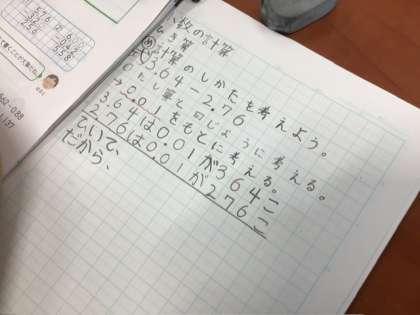 数の計算
き算
め 計算のしかたを考えよう。
3.64-2.76
たし算と同じように考える。
→0.01をもとに考える。
3.64は0.01が364こ
2.76は0.01が276こ
ひいて、
だから、